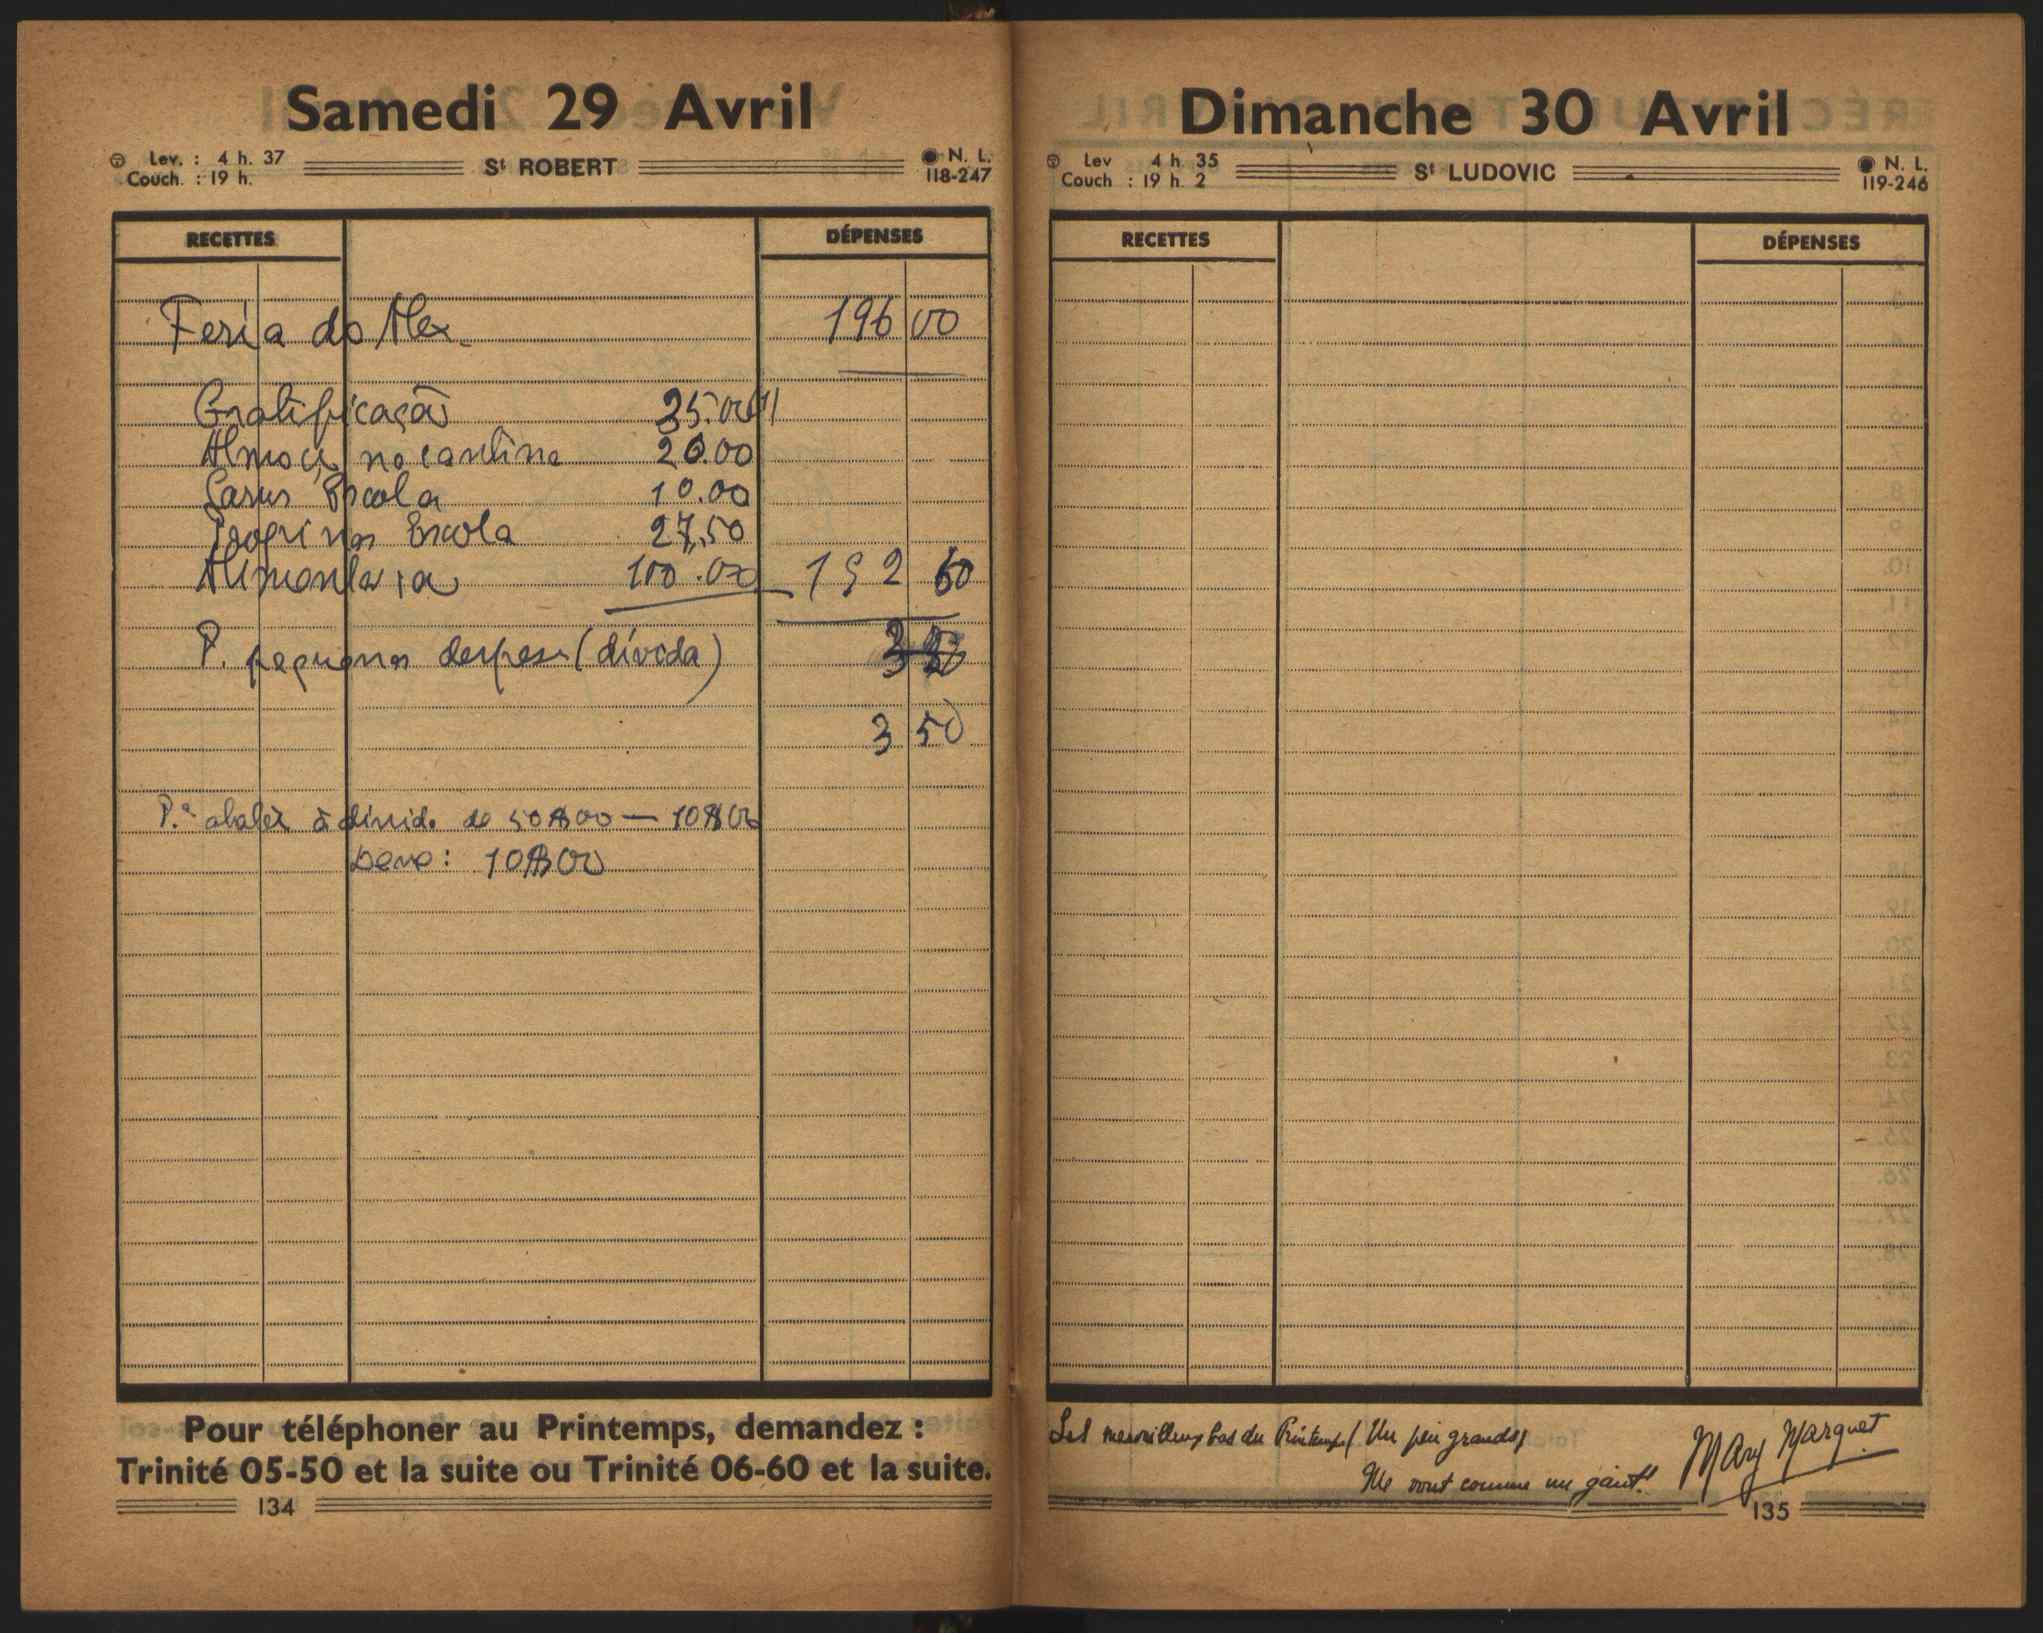 Samedi 29 Avril
Lev. : 4 h. 37
Couch. : 19 h.
St ROBERT
N. L.
118-247
RECETTES
DÉPENSES
Feria do Alex. 196 00
Gratificação 35.00
Almoço na cantina 20.00
Escola 10.00
Escola 27,50
Alimentaria 100.00 192 50
P. pequenas despesas (dívida)
3 50
P.ª abater à divida de 50$00 — 10$00
Deve: 10$00
Pour téléphoner au Printemps, demandez :
Trinité 05-50 et la suite ou Trinité 06-60 et la suite.
134
Dimanche 30 Avril
Lev 4 h. 35
Couch : 19 h. 2
St LUDOVIC
N. L.
119-246
RECETTES
DÉPENSES
Les merveilleux bas du Printemps! Un peu grands,
Ils vont comme un gant!
Mary Marquet
135